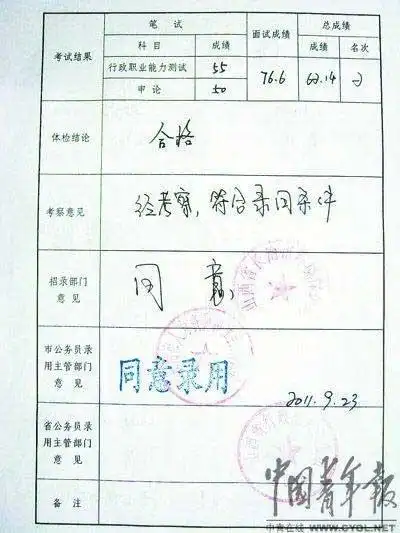 考试结果
笔试
面试成绩
总成绩
科目
成绩
成绩
名次
行政职业能力测试
55
76.6
63.14
2
申论
50
体检结论
合格
考察意见
经考察，符合录用条件
招录部门
意见
同意
市公务员录
用主管部门
意见
同意录用
2011.9.23
省公务员录
用主管部门
意见
备注
中国青年报
中青在线 WWW.CYOL.NET